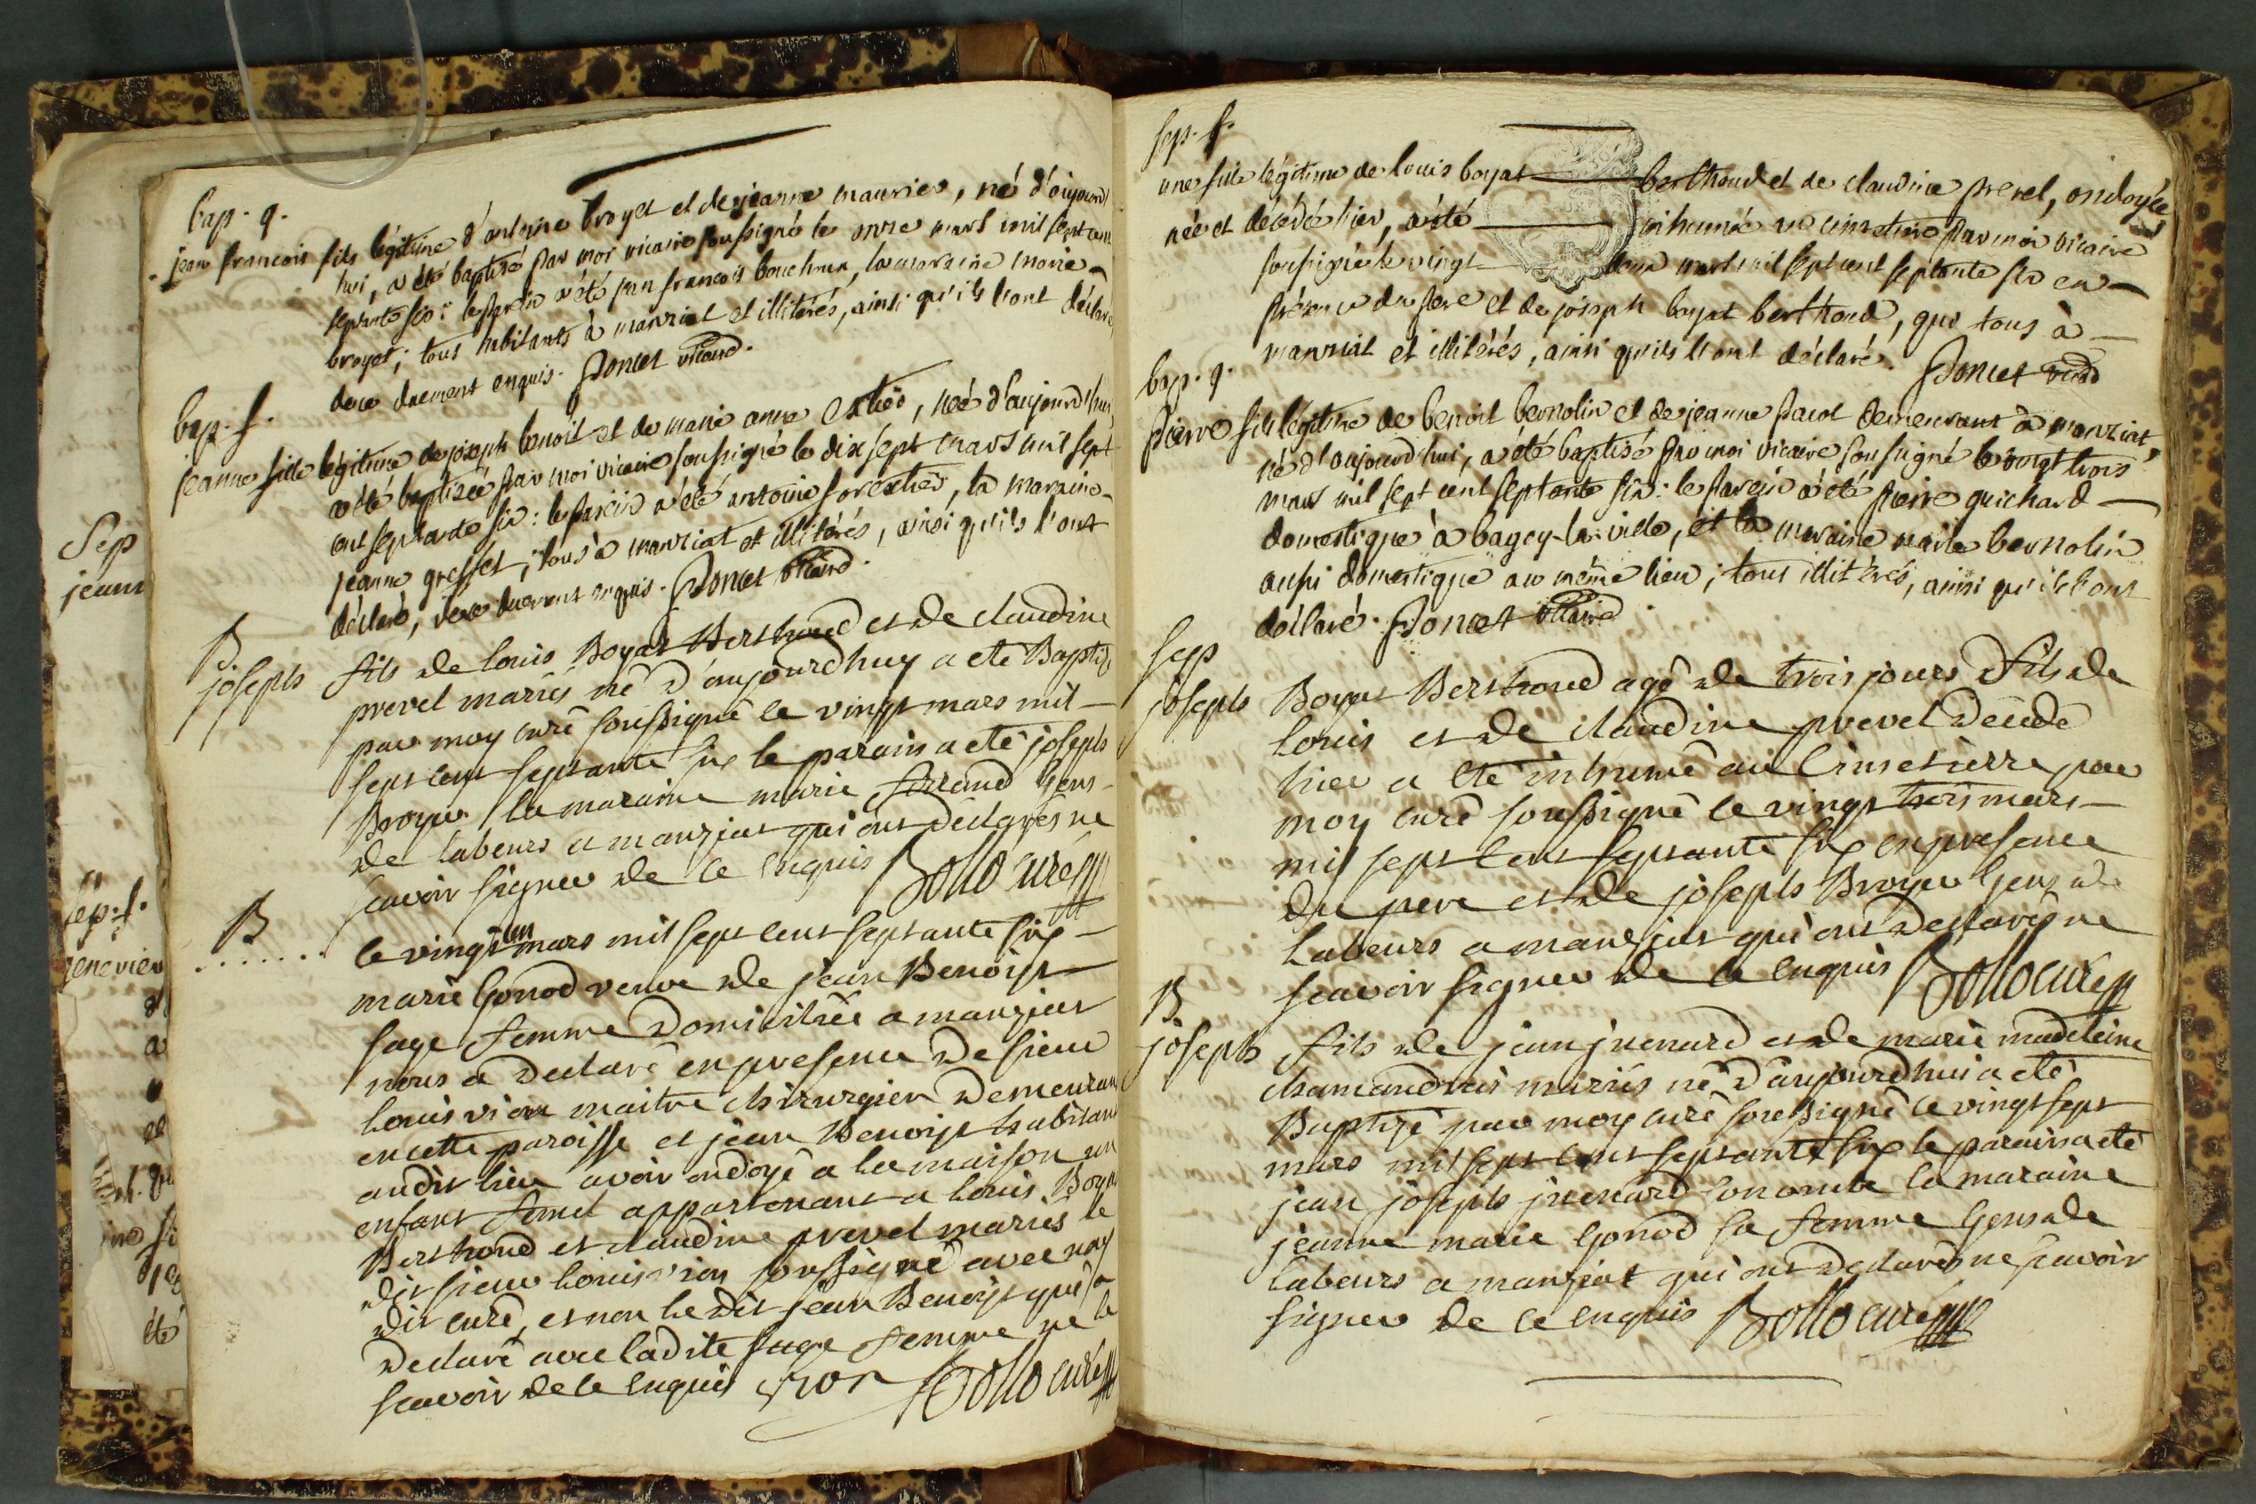 bap. g.
jean francois fils légitime d'antoine broyet et de jeanne maurier, né d'aujourd
hui, a été baptisé par moi vicaire soussigné le onze mars mil sept cent
septante six: le parein a été jean francois bouchoux, la maraine marie
broyet; tous habitants à manziat et illitérés, ainsi qu'ils l'ont déclaré
de ce duement enquis. Poncet vicaire.
bap. f.
jeanne fille légitime de joseph benoit et de marie anne extier, née d'aujourd'hui,
a été baptisée par moi vicaire soussigné le dix sept mars mil sept
cent septante six: le parein a été antoine forestier, la maraine
jeanne greffet; tous à manziat et illitérés, ainsi qu'ils l'ont
déclaré, de ce duement enquis. Poncet vicaire.
B
joseph fils de louis Boyat Berthoud et de claudine
prevel mariés né d'aujourdhuy a eté Baptisé
par moy curé soussigné le vingt mars mil
sept cent septante six le parain a eté joseph
Broyer la maraine marie ferrand Gens
de labeurs a manziat qui ont déclarés ne
scavoir signer de ce enquis Bollo curé
B
....... le vingt un mars mil sept cent septante six
marie Gonod veuve de jean Benoist
sage femme domicitiée a manziat
nous a declaré en presence de sieur
louis vion maitre chirurgien demeurant
en cette paroisse et jean Benoist habitant
audit lieu avoir ondoyé a la maison un
enfant femel appartenant a louis Boyat
Berthoud et claudine prevel mariés le
dit sieur louis vion soussigné avec nous
dit curé, et non le dit jean Benoist qui a
declaré avec ladite sage femme ne le
scavoir de ce enquis vion Bollo curé
sep. f.
une fille légitime de louis boyat berthoud et de claudine prevel, ondoyée
née et décédée hier, a été inhumée au cimetiere par moi vicaire
soussigné le vingt deux mars mil sept cent septante six en
présence du pere et de joseph boyat berthoud, que tous à
manziat et illitérés, ainsi qu'ils l'ont déclaré. Poncet vicaire
bap. g.
Pierre fils légitime de benoit bernolin et de jeanne pacot demeurant à manziat,
né d'aujourd'hui, a été baptisé par moi vicaire soussigné le vingt trois
mars mil sept cent septante six: le parein a été pierre guichard
domestique à bagey-la-ville, et la maraine marie bernolin
aussi domestique au même lieu; tous illitérés, ainsi qu'ils l'ont
déclaré. Poncet vicaire.
sep
joseph Boyat Berthoud agé de trois jours fils de
louis et de claudine prevel décedé
hier a eté inhumé au Cimetierre par
moy curé soussigné le vingt trois mars
mil sept cent septante six en presence
du pere et de joseph Broyer Gens de
labeurs a manziat qui ont declarés ne
scavoir signer de ce enquis Bollo curé
B.
joseph fils de jean juenard et de marie madeleine
chamandrais mariés né d'aujourdhui a eté
Baptisé par moy curé soussigné le vingt sept
mars mil sept cent septante six le parain a eté
jean joseph juenard son oncle la maraine
jeanne marie Gonod sa femme Gens de
labeurs a manziat qui ont declarés ne scavoir
signer de ce enquis Bollo curé
Sep
jeann
sep. f.
genevier
été